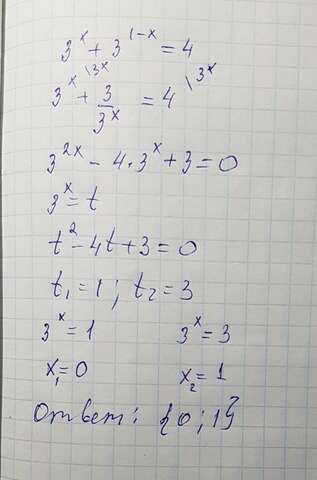 3^x + 3^(1-x) = 4
3^x \3^x + 3/3^x = 4 \3^x
3^(2x) - 4 · 3^x + 3 = 0
3^x = t
t^2 - 4t + 3 = 0
t₁ = 1 ; t₂ = 3
3^x = 1 3^x = 3
x₁ = 0 x₂ = 1
Ответ: {0 ; 1}